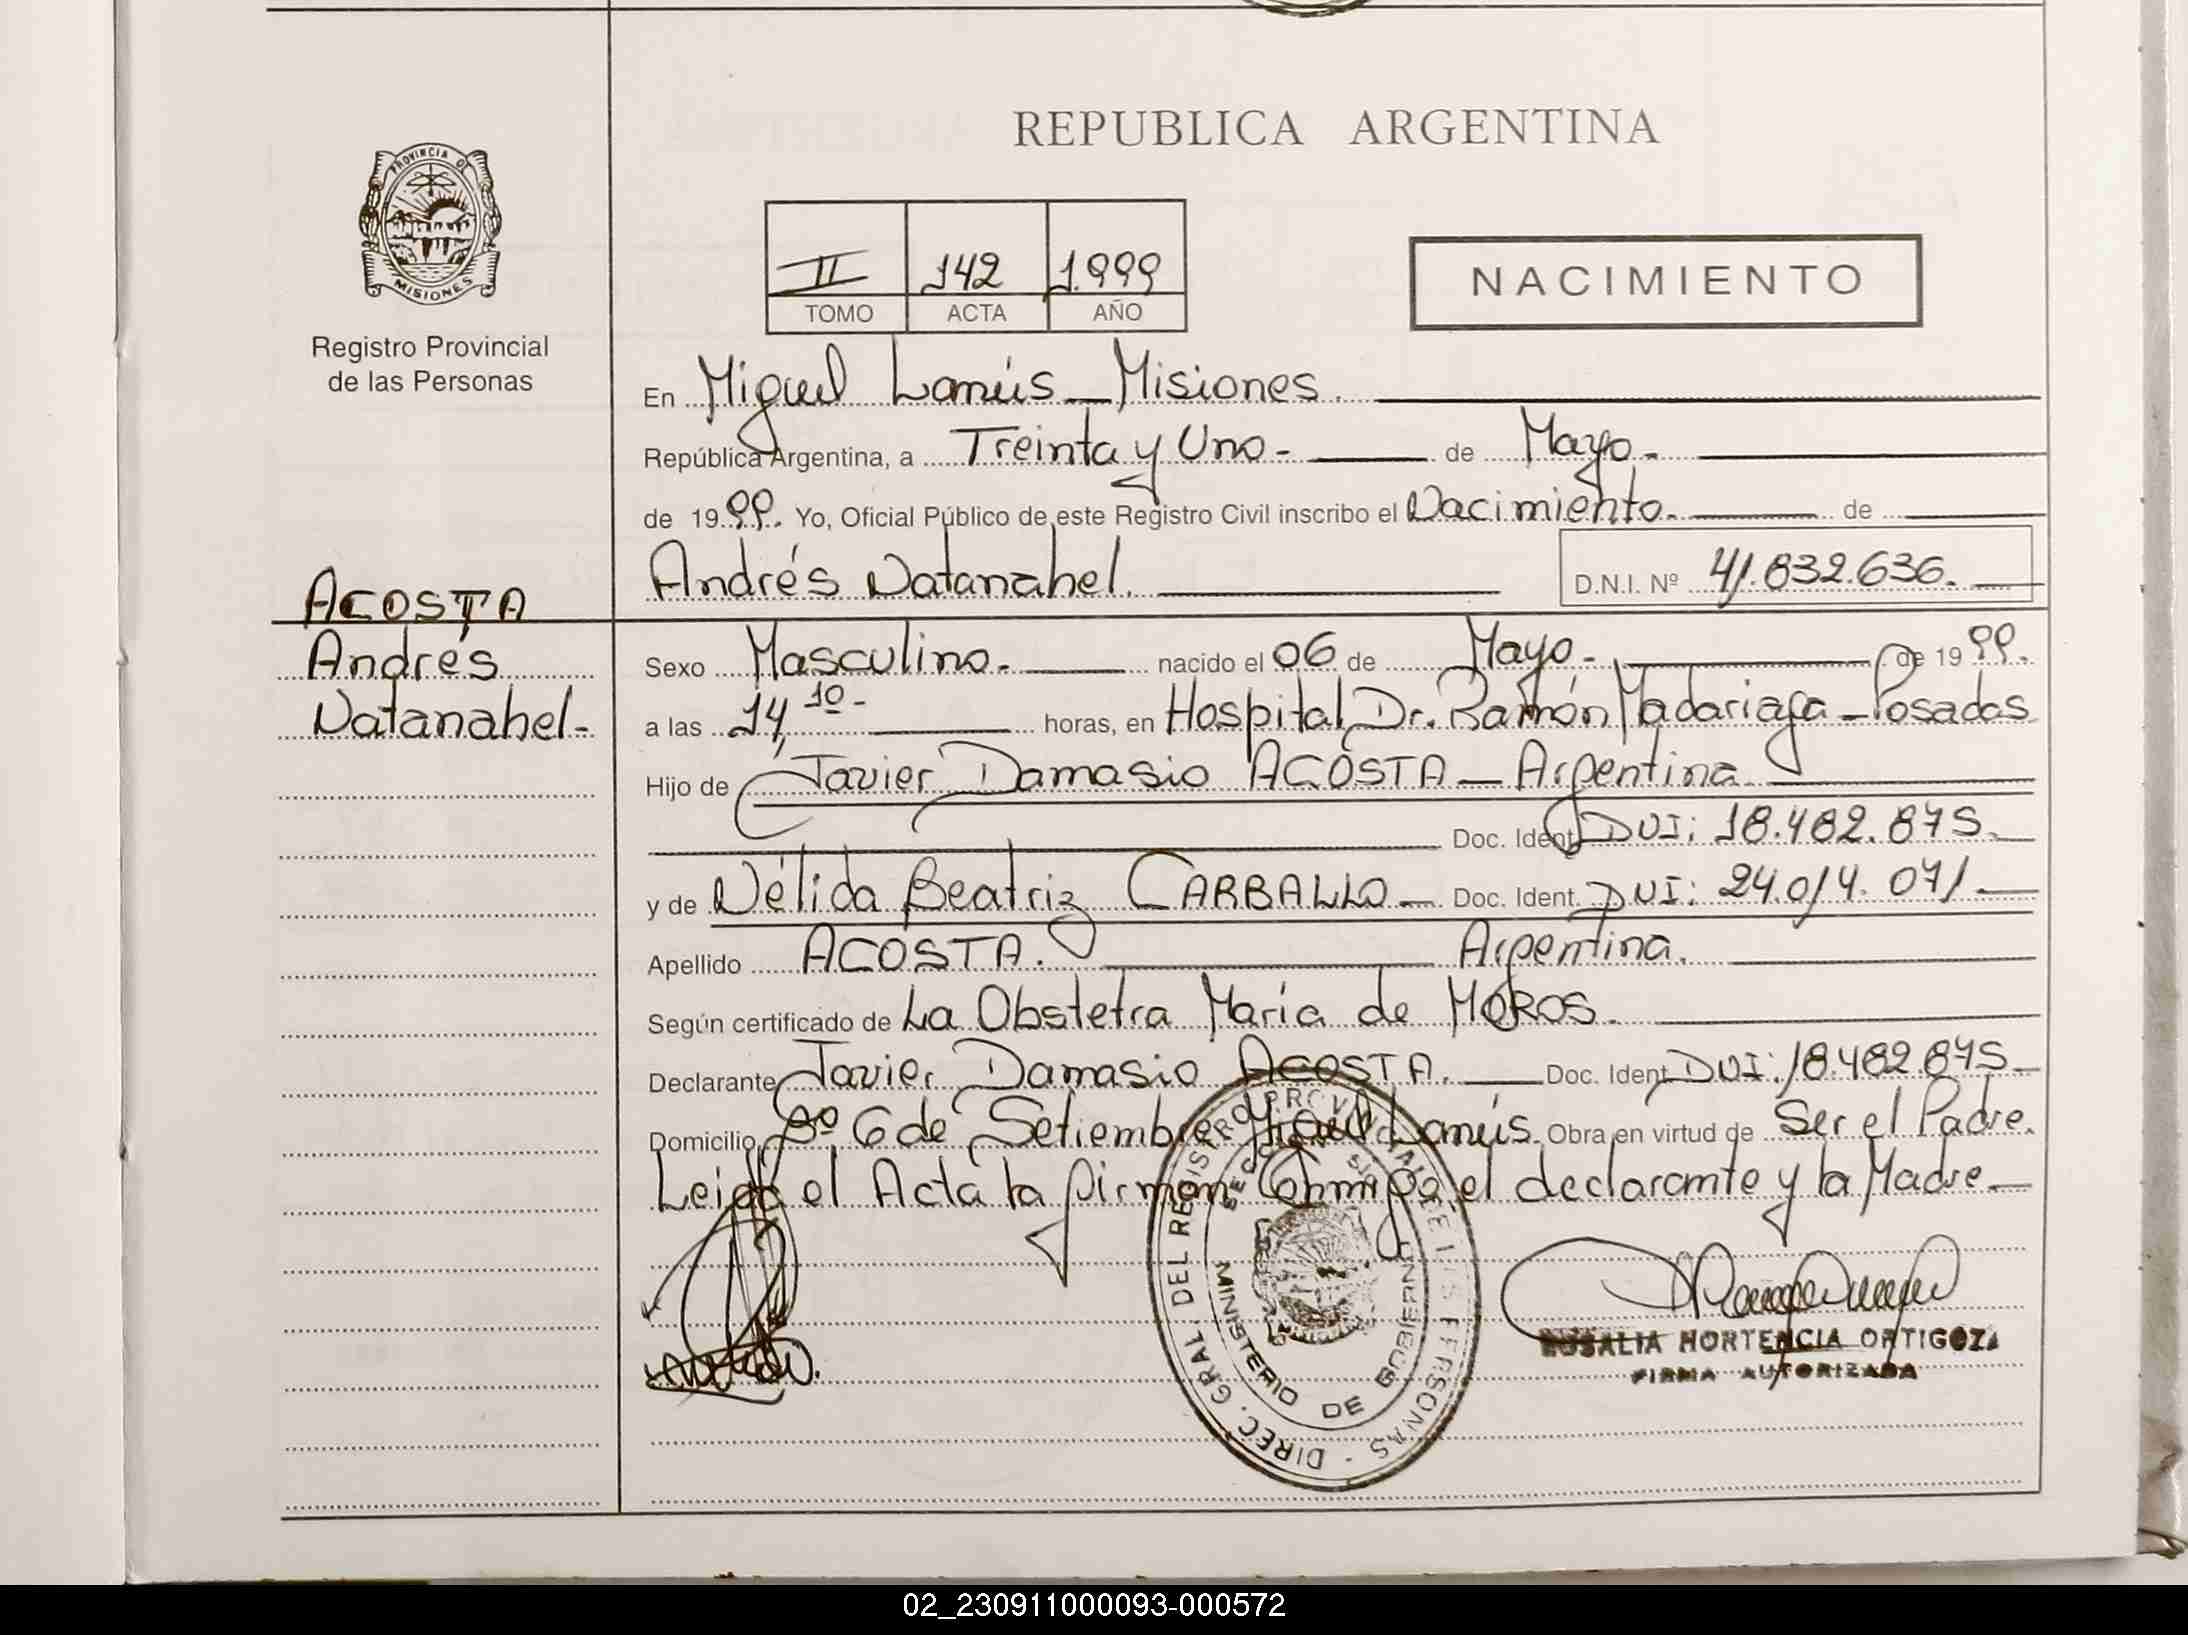 REPUBLICA ARGENTINA
PROVINCIA DE
MISIONES
Registro Provincial
de las Personas
II 142 1.999
TOMO ACTA AÑO
NACIMIENTO
En Miguel Lanús _ Misiones.
República Argentina, a Treinta y Uno - de Mayo.-
de 1999. Yo, Oficial Público de este Registro Civil inscribo el Nacimiento. de
Andrés Natanahel. D.N.I. Nº 41.832.636.
ACOSTA
Andrés
Natanahel-
Sexo Masculino.- nacido el 06 de Mayo - de 1999.
a las 14,10- horas, en Hospital Dr. Ramón Madariaga - Posadas
Hijo de Javier Damasio ACOSTA - Argentina
Doc. Ident. DNI: 18.482.875.
y de Nélida Beatriz CARBALLO - Doc. Ident. DNI: 24.014.071
Apellido ACOSTA. Argentina.
Según certificado de La Obstetra María de MOROS.
Declarante Javier Damasio ACOSTA. Doc. Ident. DNI: 18.482.875
Domicilio Bº 6 de Setiembre Miguel Lanús. Obra en virtud de Ser el Padre.
Leida el Acta la firman Conmigo el declarante y la Madre
DIREC. GRAL. DEL REGISTRO PROVINCIAL DE LAS PERSONAS
MINISTERIO DE GOBIERNO
ROSALIA HORTENCIA ORTIGOZA
FIRMA AUTORIZADA
02_230911000093-000572